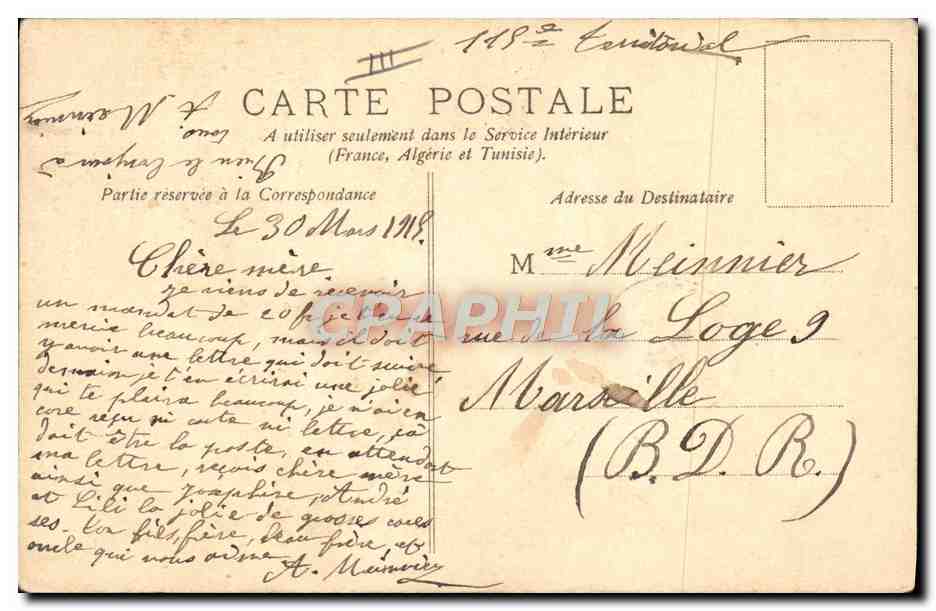 115e territorial
III
CARTE POSTALE
A utiliser seulement dans le Service Intérieur
(France, Algérie et Tunisie).
Rien le
A Meinnier
Partie réservée à la Correspondance
Adresse du Destinataire
Le 30 Mars 1915.
Chère mère
je viens de recevoir
un mandat de 20f je te
mercie beaucoup, mais il doit
y avoir une lettre qui doit suivre
demain je t'en écrirai une jolie
qui te plaira beaucoup, je n'ai en
core reçu ni carte ni lettre, ça
doit être la poste, en attendant
ma lettre, reçois chère mère
ainsi que Joséphine, André
et Lili la jolie de grosses cares
ses. Ton fils, frère, beau frère, et
oncle qui vous aime
A. Meinnier
Mme Meinnier
rue de la Loge 9
Marseille
(B. D. R.)
CPAPHIL